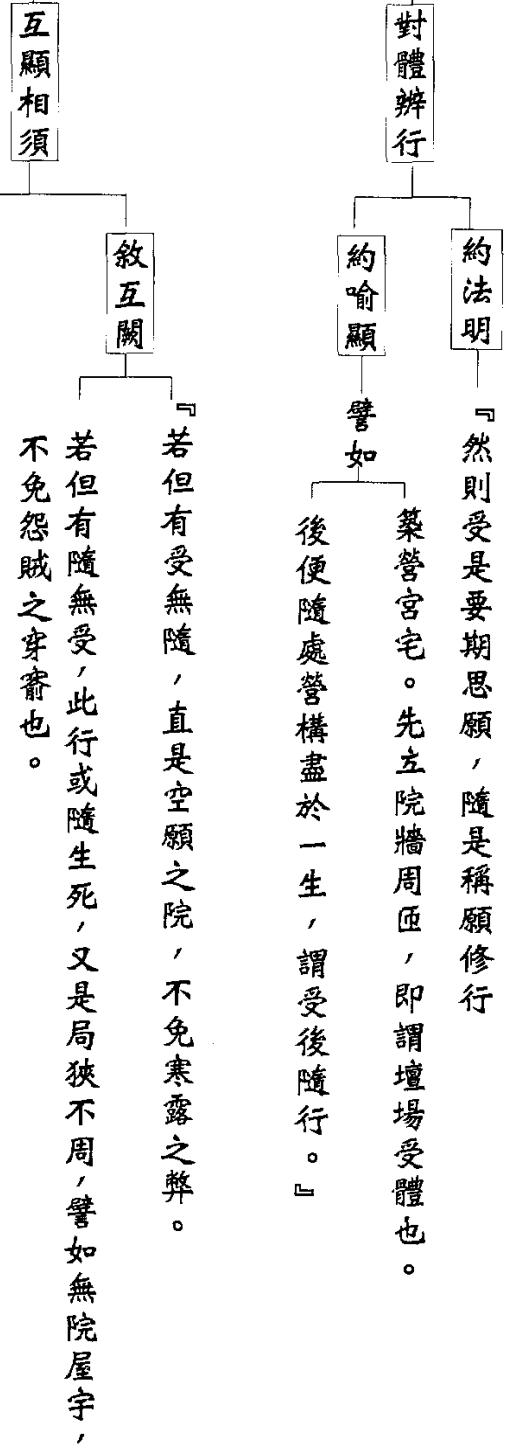 對體辨行
約法明
『然則受是要期思願，隨是稱願修行
約喻顯
譬如
築營宮宅。先立院牆周匝，即謂壇場受體也。
後便隨處營構盡於一生，謂受後隨行。』
互顯相須
敘互闕
『若但有受無隨，直是空願之院，不免寒露之弊。
若但有隨無受，此行或隨生死，又是局狹不周，譬如無院屋宇，
不免怨賊之穿窬也。